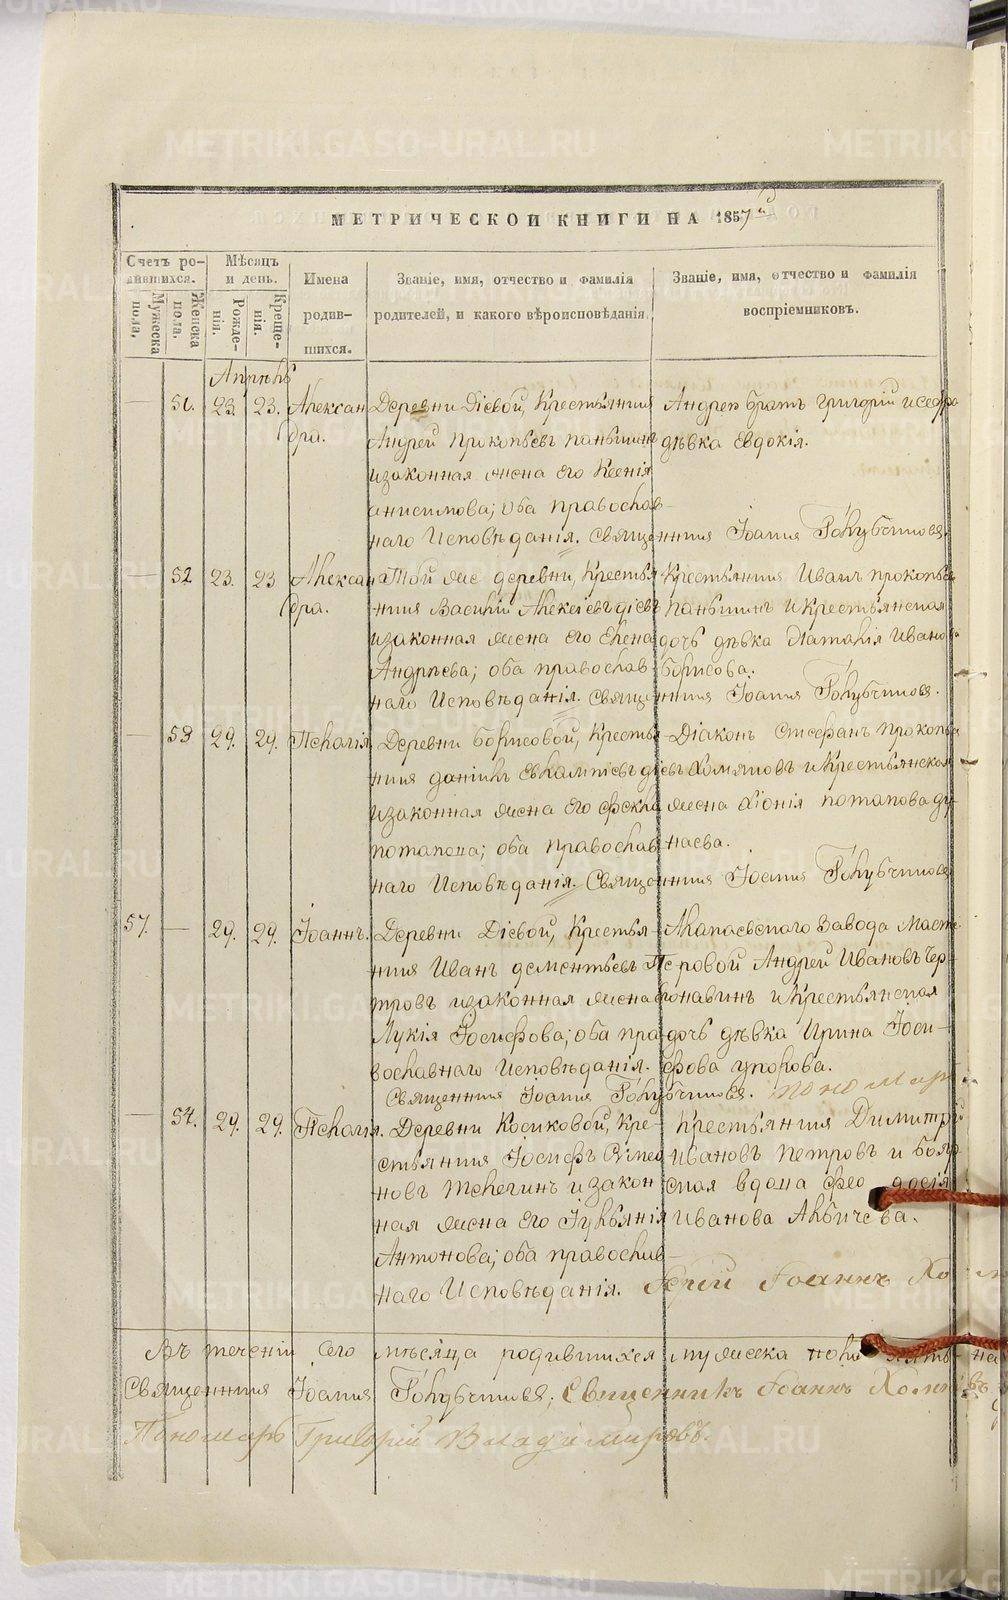 МЕТРИЧЕСКОЙ КНИГИ НА 1857й
Счетъ родившихся.
Мѣсяцъ и день.
Имена родившихся.
Званіе, имя, отчество и фамилія родителей, и какого вѣроисповѣданія.
Званіе, имя, отчество и фамилія воспріемниковъ.
Мужеска пола.
Женска пола.
Рожденія.
Крещенія.
Апрѣль
51. 23. 23. Александра.
Деревни Діевой, Крестьянинъ
Андрей Прокопьевъ Паньшинъ
и законная жена его Ксенія
Анисимова; оба православ-
наго Исповѣданія. Священникъ Іоаннъ Голубчиковъ.
Андрея братъ Григорій и сестра
дѣвка Евдокія.
52 23. 23 Александра.
Той же деревни, Крестья-
нинъ Василій Алексіевъ Діевъ
и законная жена его Елена
Андріева; оба православ-
наго Исповѣданія. Священникъ Іоаннъ Голубчиковъ.
Крестьянинъ Иванъ Прокопьевъ
Паньшинъ и Крестьянская
дочь дѣвка Наталія Иванова
Борисова.
53 29. 29. Пелагія
Деревни Борисовой, Крестья-
нинъ Даніилъ Евлампіевъ Діевъ
и законная жена его Фекла
Потапова; оба православ-
наго Исповѣданія. Священникъ Іоаннъ Голубчиковъ
Діаконъ Стефанъ Прокопьевъ
Хомяковъ и Крестьянская
жена Хіонія Потапова Ду-
наева.
57. 29. 29. Іоаннъ.
Деревни Діевой, Крестья-
нинъ Иванъ Дементьевъ Пе-
тровъ и законная жена
Лукія Іосифова; оба пра-
вославнаго Исповѣданія.
Священникъ Іоаннъ Голубчиковъ. Пономарь
Алапаевскаго Завода Масте-
ровой Андрей Ивановъ Чер-
и Крестьянская
дочь дѣвка Ирина Іоси-
фова Упорова.
54. 29. 29. Пелагія.
Деревни Косиковой, Кре-
стьянинъ Іосифъ Симео-
новъ Телегинъ и закон-
ная жена его Іуліянія
Антонова; оба православ-
наго Исповѣданія. Іерей Іоаннъ
Крестьянинъ Димитрій
Ивановъ Петровъ и Бояр-
ская вдова Феодосія
Иванова Албичева.
Въ теченіи сего мѣсяца родившихся мужеска пола
Священникъ Іоаннъ Голубчиковъ; Священникъ Іоаннъ
Пономарь Григорій Владиміровъ.
METRIKI.GASO-URAL.RU